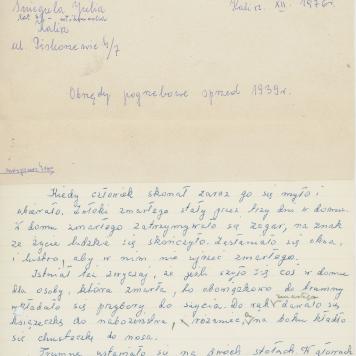 Śniegula Julia Kalisz, XII. 1976r.
lat
Kalisz
ul. 4/7
Obrzędy pogrzebowe sprzed 1939r.
Kiedy człowiek skonał zaraz go się myło i
ubierało. Zwłoki zmarłego stały przez trzy dni w domu.
W domu zmarłego zatrzymywało są zegar, na znak
że życie ludzkie się skończyło. Zasłaniało się okna
i lustro, aby w nim nie ujrzeć zmarłego.
Istniał też zwyczaj, że jeśli szyło się coś w domu
dla osoby, która zmarła, to obowiązkowo do trumny
wkładało się przybory do szycia. Do rąk zmarłego dawało się
książeczkę do nabożeństwa, różaniec, na boku kładło
się chusteczkę do nosa.
Trumnę ustawiało się na dwóch stołach. W głowach